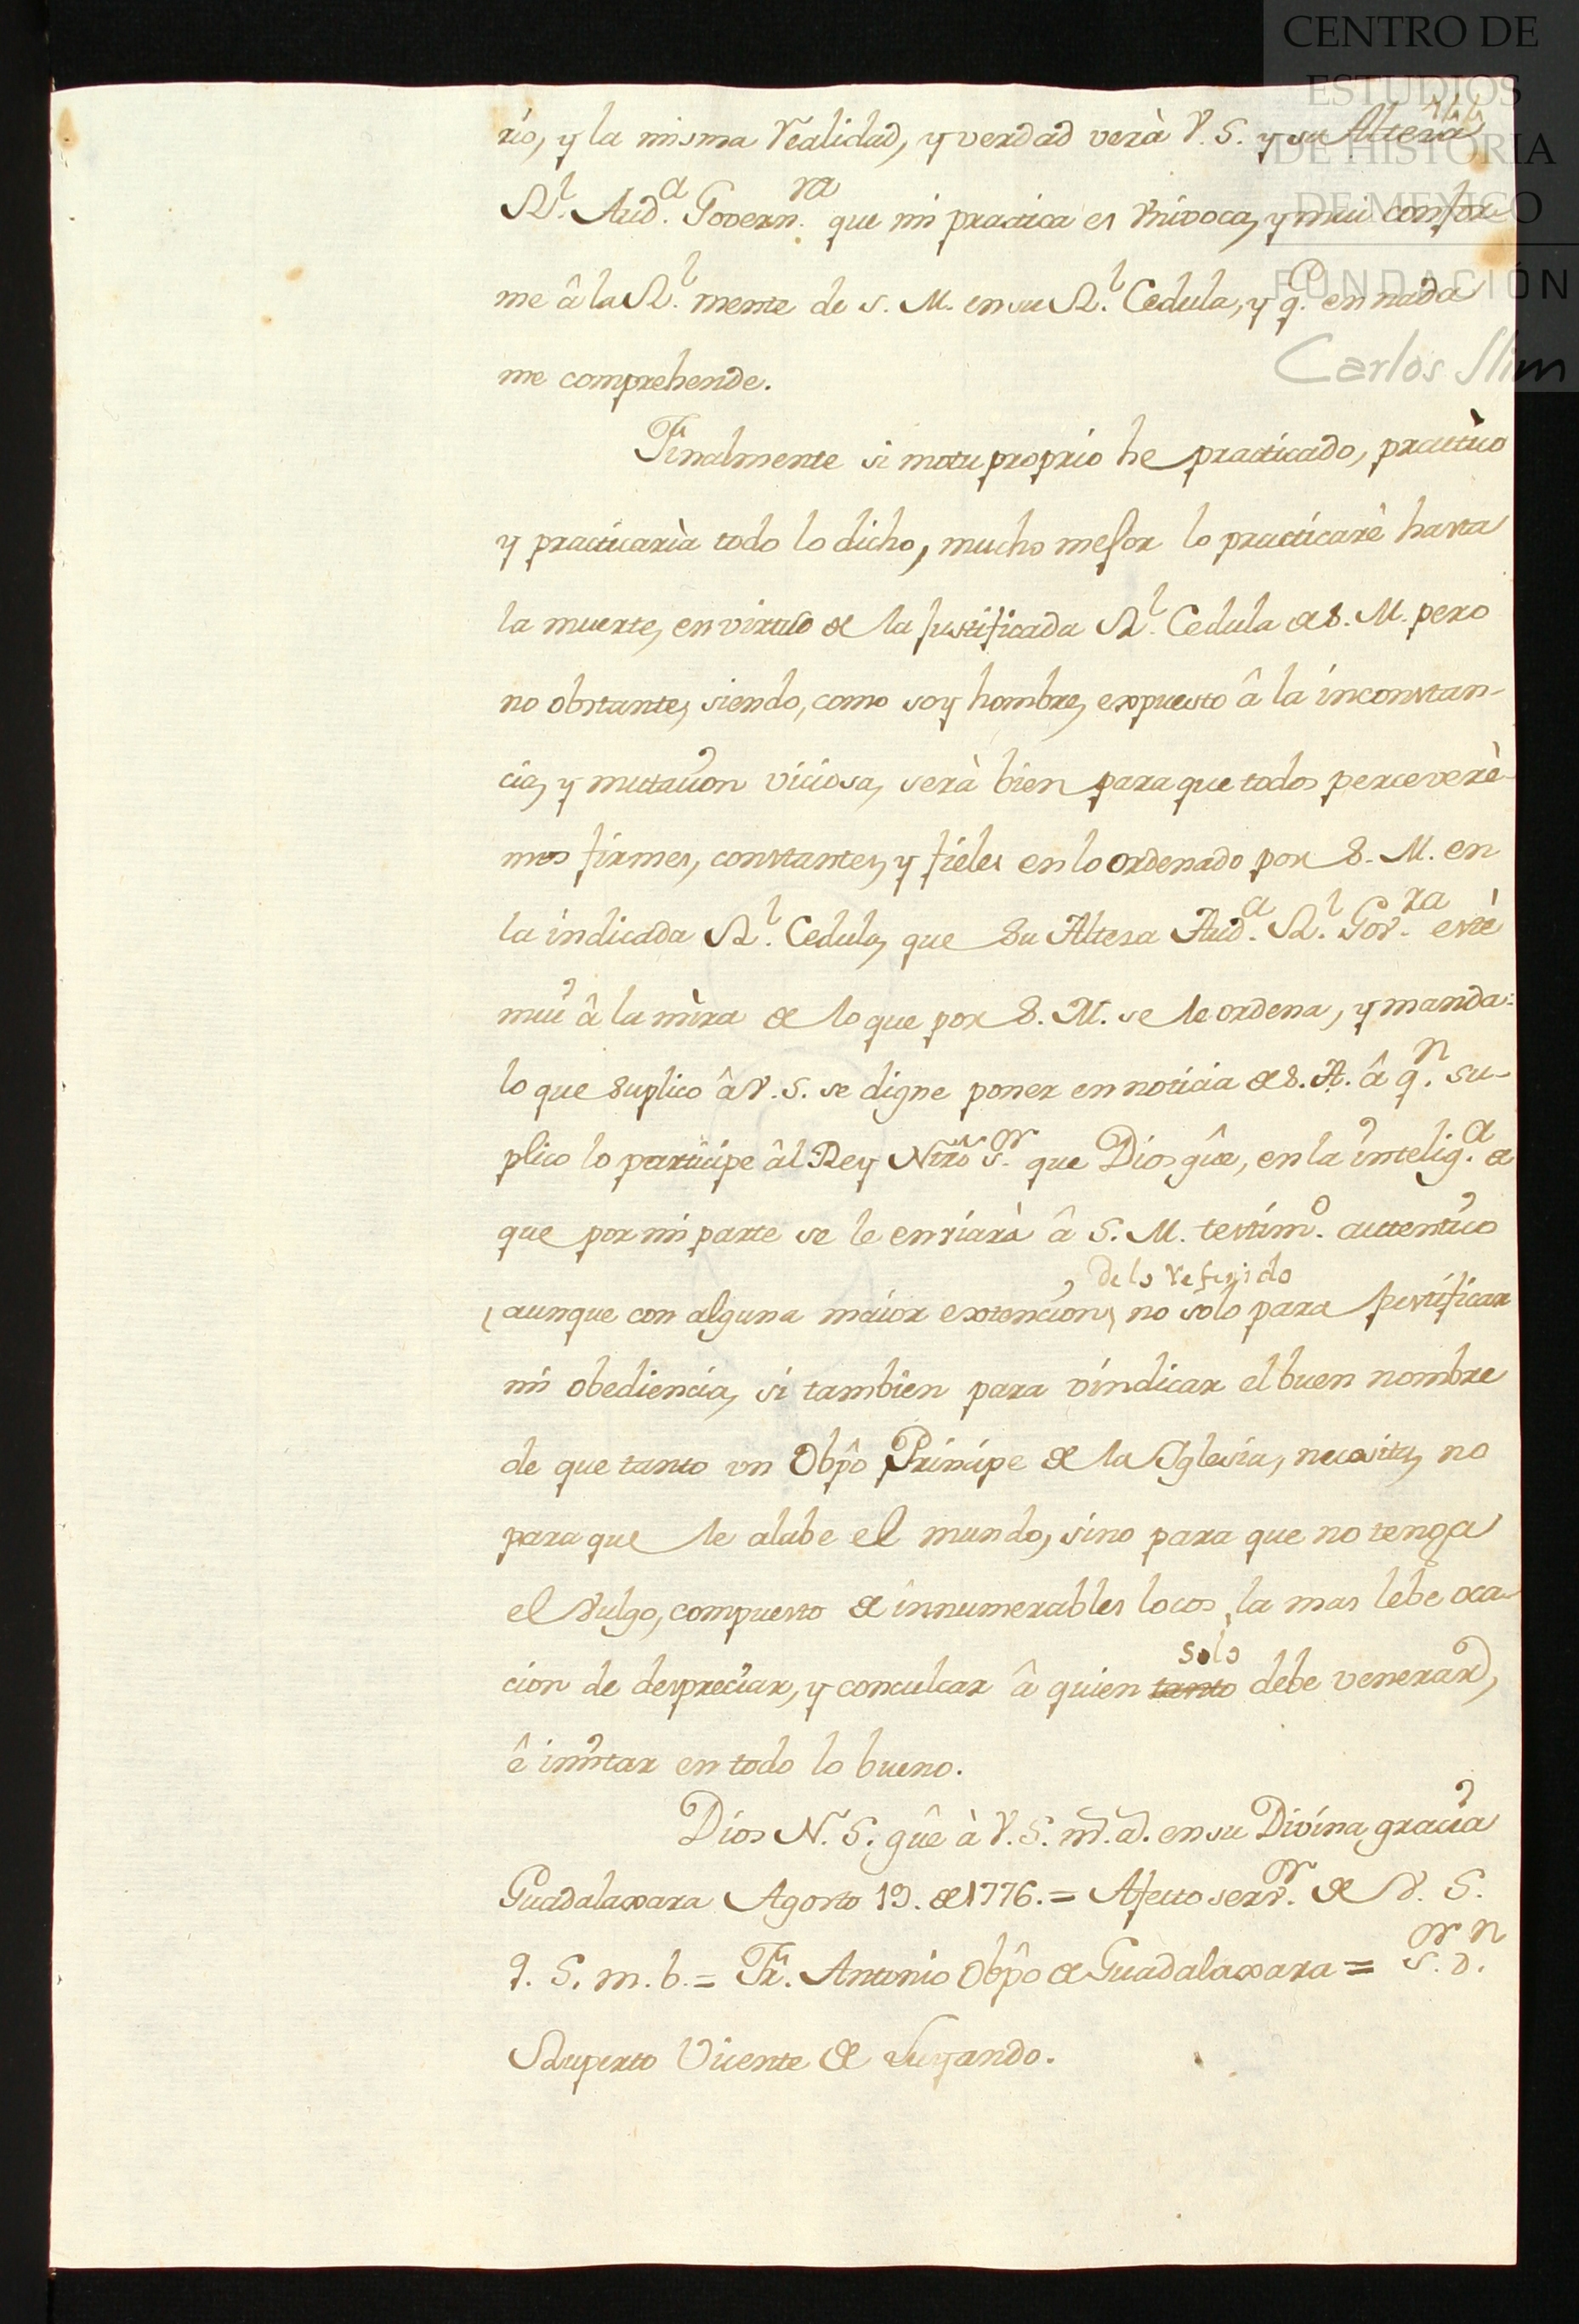 CENTRO DE
ESTUDIOS
DE HISTORIA
DE MÉXICO
FUNDACIÓN
Carlos Slim
rio, y la misma realidad, y verdad verà V. S. y su Alteza
Rl. Auda. Governra. que mi practica es vnivoca, y mui confor
me â la Rl. mente de S. M. en su Rl. Cedula, y qe. en nada
me comprehende.
Finalmente si motu proprio he practicado, practico
y practicarìa todo lo dicho, mucho mejor lo practicarè hasta
la muerte, en virtud de la justificada Rl. Cedula de S. M. pero
no obstante, siendo, como soy hombre, expuesto â la inconstan-
cia, y mutacion viciosa, serà bien para que todos perceverè-
mos firmes, constantes, y fieles en lo ordenado por S. M. en
la indicada Rl. Cedula, que Su Altesa Auda. Rl. Govra. estè
mui â la mira de lo que por S. M. se le ordena, y manda:
lo que suplico â V. S. se digne poner en noticia de S. A. â qn. su-
plico lo participe âl Rey Ntrô Sor. que Dios gûe, en la inteliga. de
que por mi parte se le enviarà â S. M. testimo. autentico
de lo referido
(aunque con alguna maior extencion, no solo para justificar
mi obediencia, si tambien para vindicar el buen nombre
de que tanto vn Obpô Principe de la Iglesia, necesita, no
para que le alabe el mundo, sino para que no tenga
el Vulgo, compuesto de innumerables locos, la mas lebe oca-
cion de despreciar, y conculcar â quien tanto solo debe venerar,
ê imitar en todo lo bueno.
Dios N. S. gûe à V. S. ms. as. en su Divina gracia
Guadalaxara Agosto 19. de 1776. = Afecto servor. de V. S.
q. S. m. b. = Fr. Antonio Obpô de Guadalaxara = Sor. Dn.
Ruperto Vicente de Luyando.